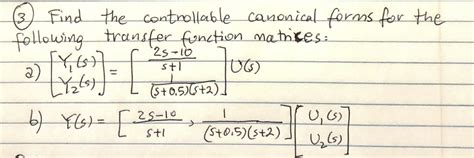 ③ Find the controllable canonical forms for the
following transfer function matrices:
a) [Y₁(s) Y₂(s)] = [(2s-10)/(s+1) 1/((s+0.5)(s+2))] U(s)
b) Y(s) = [(2s-10)/(s+1) , 1/((s+0.5)(s+2))] [U₁(s) U₂(s)]